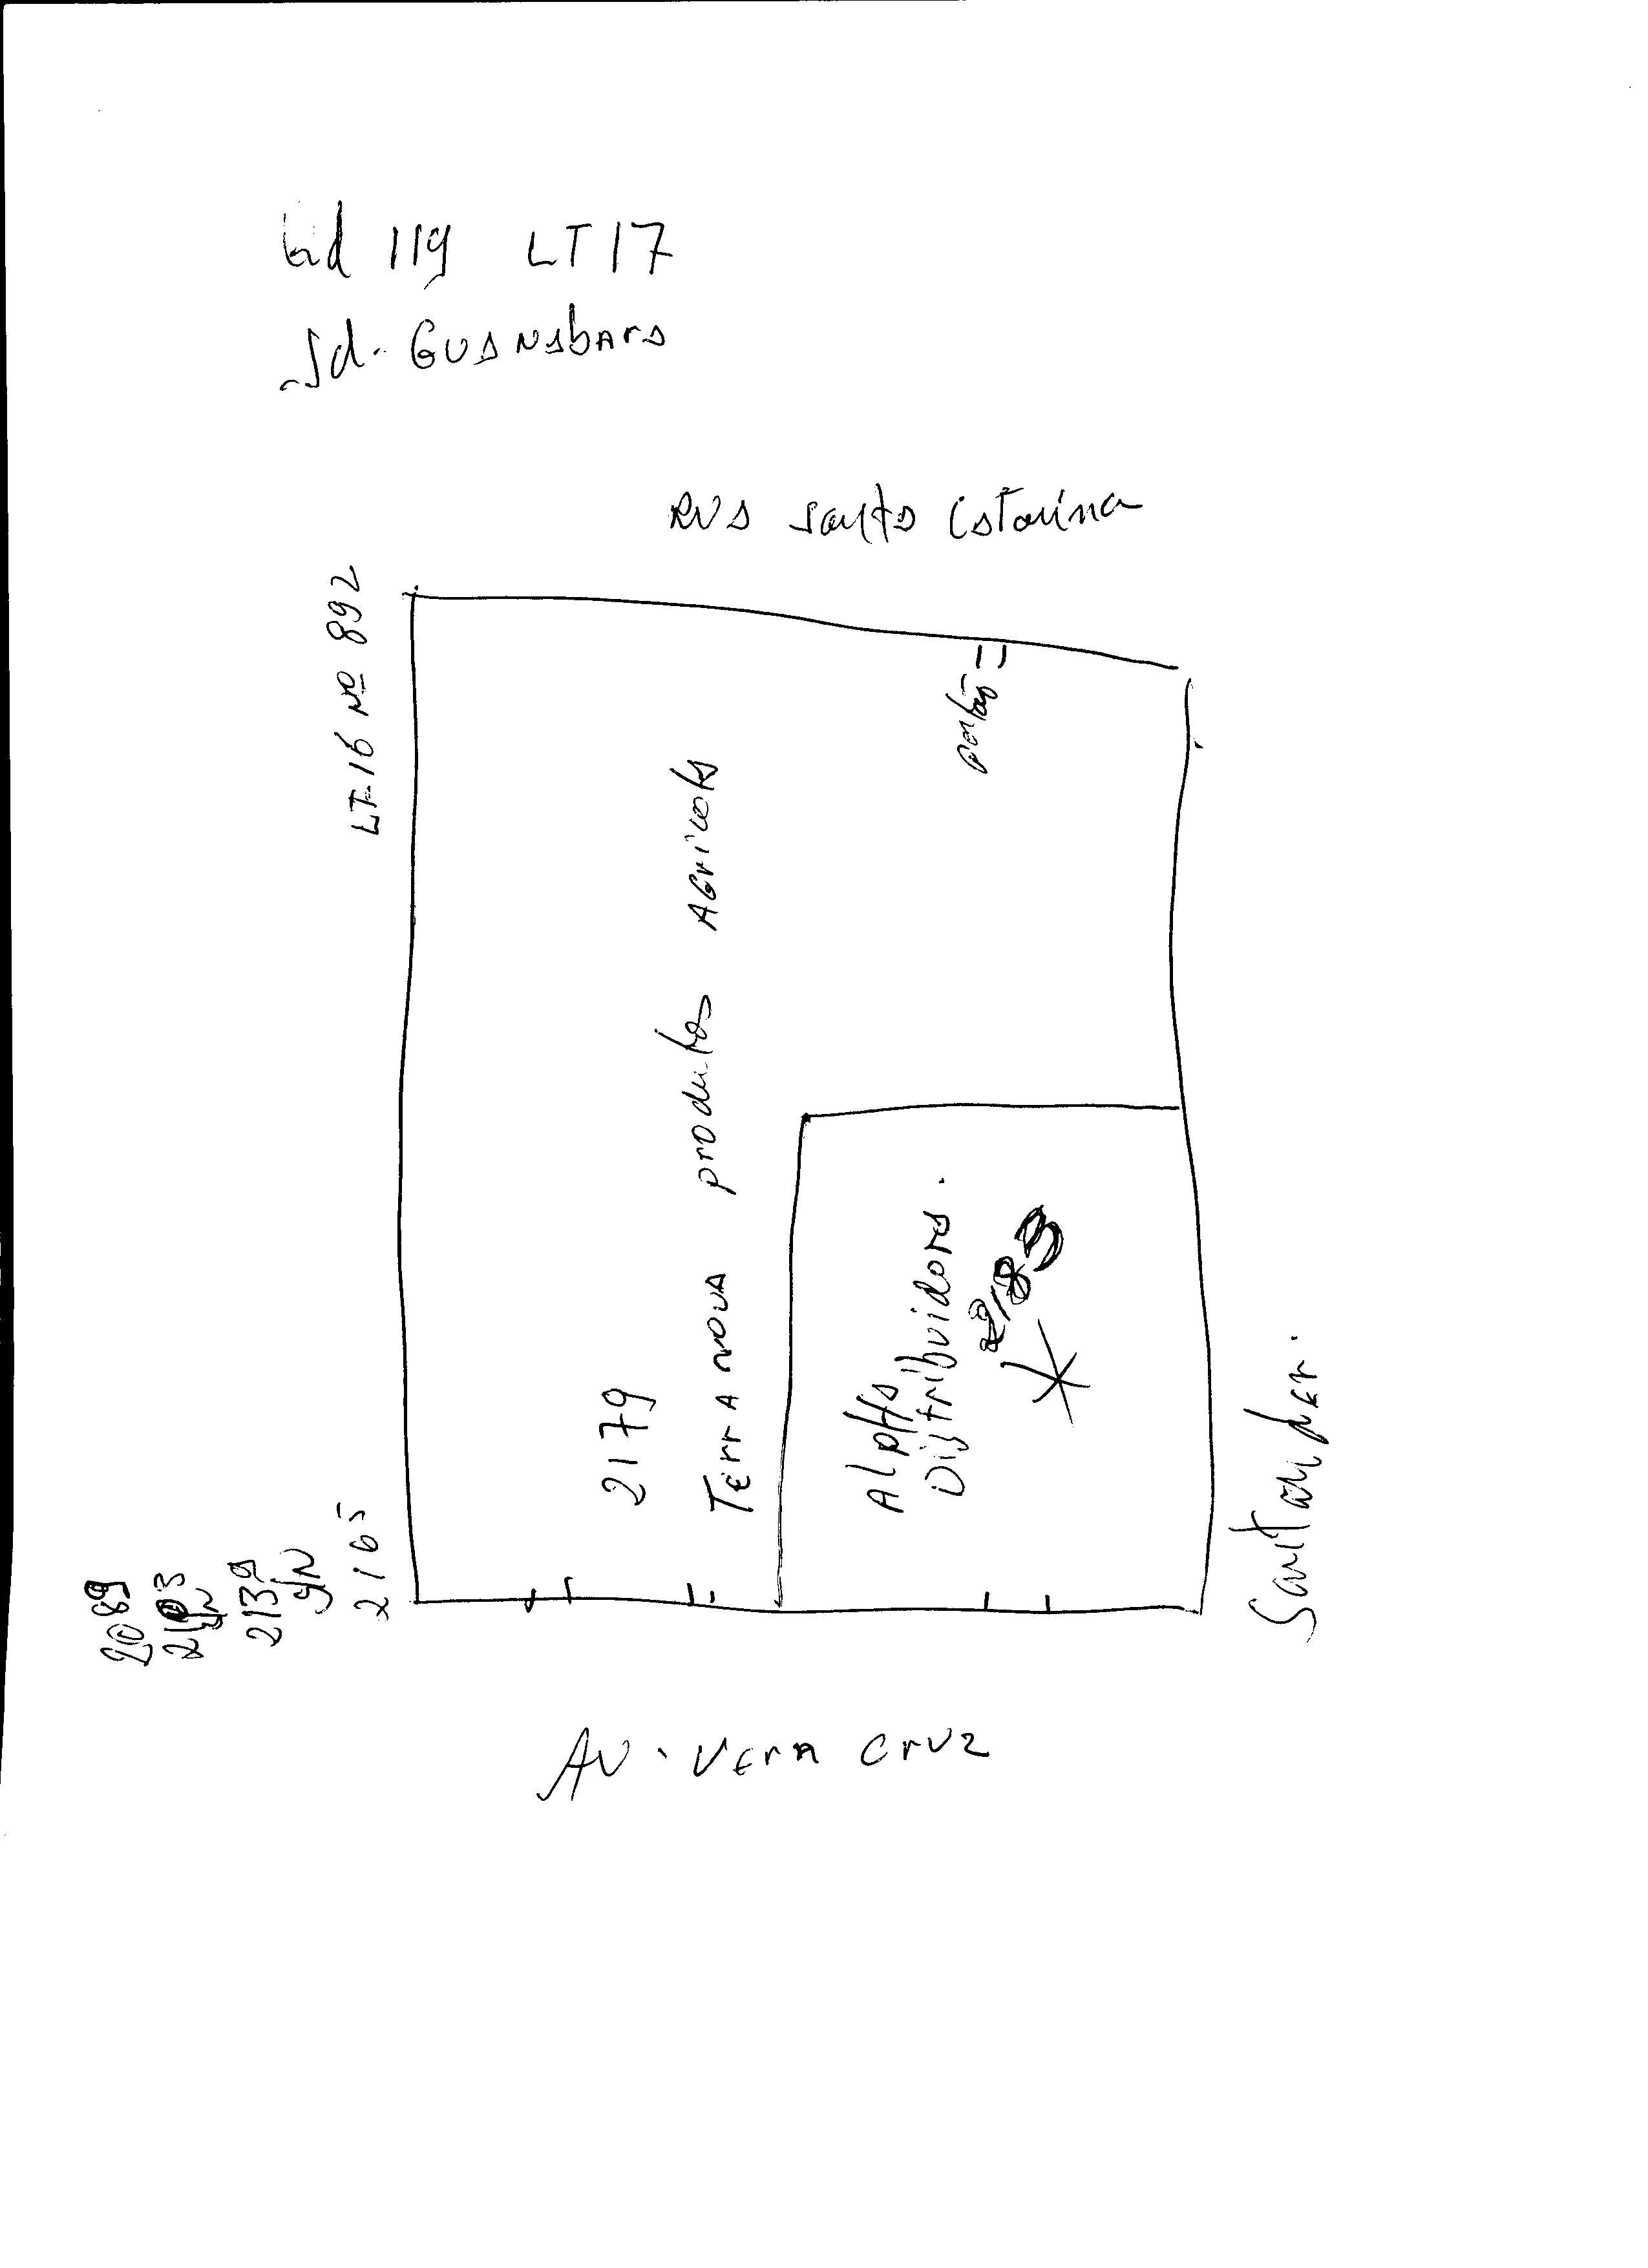 Qd 119 LT 17
Jd. GUANABARA
RUA Santa Catarina
LT-16 Nº 892
portão
2179
TERRA NOVA produtos AGRICOLA
Alpha
Distribuidora.
2183
2089
2139
S/N
2165
Santander.
AV. VERA CRUZ